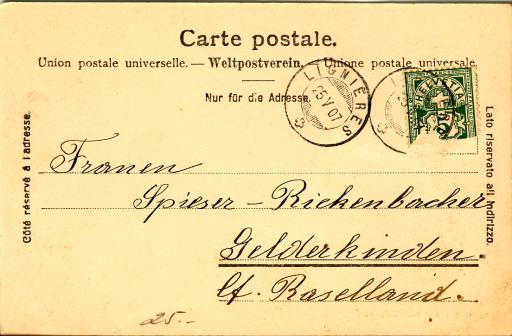 Carte postale.
Union postale universelle. — Weltpostverein. — Unione postale universale
Nur für die Adresse
LIGNIÈRES
25 V 07
HELVETIA
Côté réservé à l'adresse.
Lato riservato all'indirizzo.
Frauen
Spieser-Rickenbacher
Gelderkinden.
Ct. Baselland.
25.-